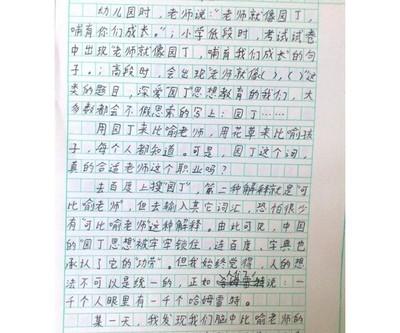 幼儿园时，老师说："老师就像园丁，
哺育你们成长。"；小学低段时，考试试卷
中出现"老师像园丁，哺育我们成长"的句
子。；高段时，会出现"老师像( )，( )"这
类的题目，深爱"园丁"思想教育的我们，大
多数都会不假思索的写上：园丁……
用园丁来比喻老师，用花草来比喻孩
子，每个人都知道。可是，园丁这个词，
真的合适老师这个职业吗？
去百度上搜"园丁"，第二种解释就是"可
比喻老师"，但去输入其它词汇，恐怕很少
有"可比喻老师"这种解释。由此可见，中国
的"园丁思想"被牢牢锁住，连百度、字典也
承认了它的"功劳"。但我始终觉得，人的想
法不可以是统一的，正如 说：一
千个人眼里有一千个哈姆雷特。
某一天，我发现我们脑中比喻老师的